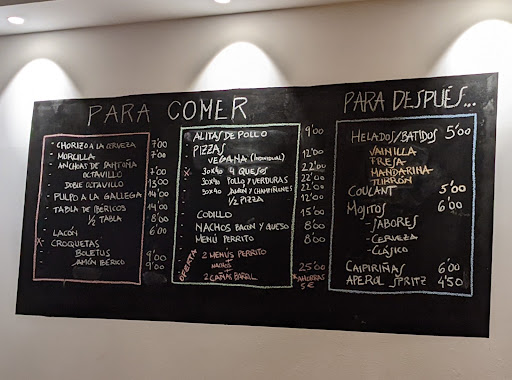 PARA COMER
CHORIZO A LA CERVEZA 7'00
MORCILLA 7'00
ANCHOAS DE SANTOÑA
OCTAVILLO 7'00
DOBLE OCTAVILLO 13'00
PULPO A LA GALLEGA 14'00
TABLA DE IBÉRICOS 14'00
1/2 TABLA 8'00
LACÓN 6'00
X CROQUETAS
BOLETUS 9'00
JAMÓN IBÉRICO 9'00
ALITAS DE POLLO 9'00
PIZZAS
VEGANA (Individual) 12'00
X 30x40 4 QUESOS 22'00
30x40 POLLO Y VERDURAS 22'00
30x40 JAMÓN Y CHAMPIÑONES 22'00
1/2 PIZZA 12'00
CODILLO 15'00
NACHOS BACON Y QUESO 8'00
MENÚ PERRITO 8'00
OFERTA
2 MENÚS PERRITO
+
NACHOS
+
2 CAÑAS BARRIL 25'00
*AHORRAS
5€
PARA DESPUÉS...
HELADOS/BATIDOS 5'00
VAINILLA
FRESA
MANDARINA
TURRÓN
COULANT 5'00
MOJITOS 6'00
- SABORES
- CERVEZA
- CLÁSICO
CAIPIRIÑAS 6'00
APEROL SPRITZ 4'50